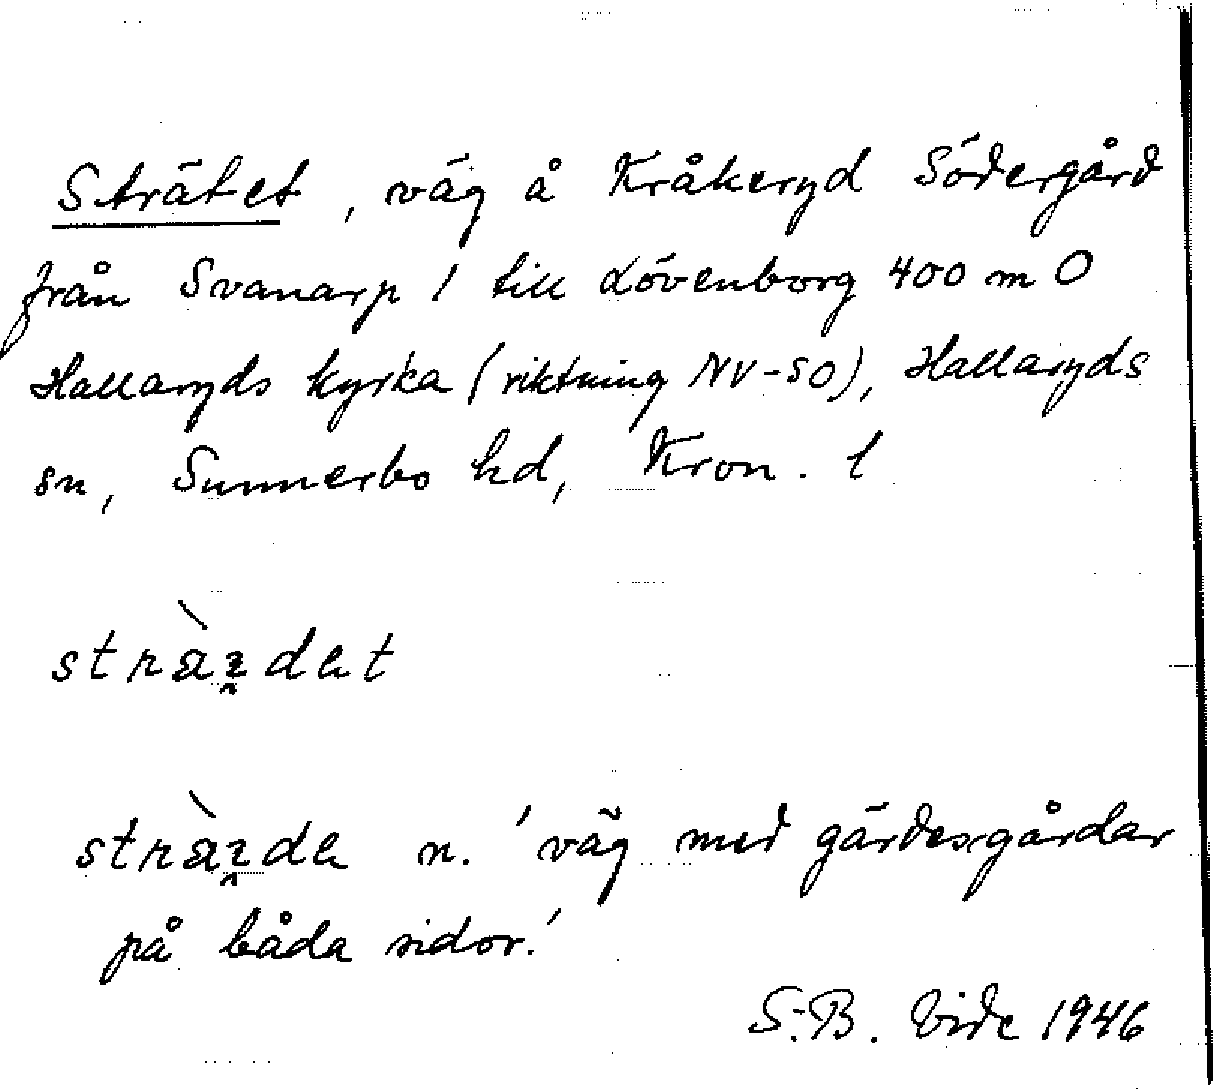 Strätet, väg å Kråkeryd Södergård
från Svanarp 1 till Lövenborg 400 m O
Hallaryds kyrka (riktning NV-SO), Hallaryds
sn, Sunnerbo hd, Kron. l
n. 'väg med gärdesgårdar
på båda sidor.'
S:B. Vide 1946